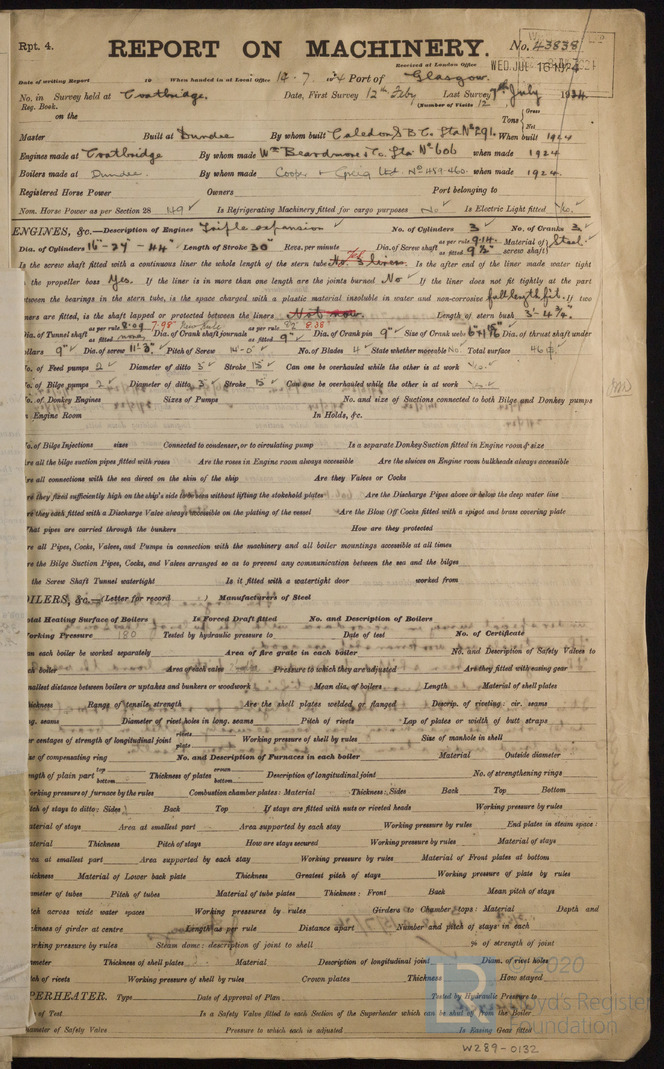 Rpt. 4.
REPORT ON MACHINERY.
No. 43838
Received at London Office WED. JUL 16 1924
Date of writing Report 19 When handed in at Local Office 12.7. 1924 Port of Glasgow.
No. in Survey held at Coatbridge. Date, First Survey 12th Feby Last Survey 7th July 1924
Reg. Book. (Number of Visits 12
on the Tons { Gross Net
Master Built at Dundee By whom built Caledon S B Co. Ltd No 291. When built 1924
Engines made at Coatbridge By whom made Wm Beardmore & Co. Ltd No 606 when made 1924
Boilers made at Dundee. By whom made Cooper & Greig Ltd. No 459-460. when made 1924.
Registered Horse Power Owners Port belonging to
Nom. Horse Power as per Section 28 149 Is Refrigerating Machinery fitted for cargo purposes No Is Electric Light fitted Yes.
ENGINES, &c.—Description of Engines Triple expansion No. of Cylinders 3 No. of Cranks 3
Dia. of Cylinders 16"-27"-44" Length of Stroke 30" Revs. per minute Dia. of Screw shaft as per rule 9.14 as fitted 9½" Material of screw shaft Steel.
Is the screw shaft fitted with a continuous liner the whole length of the stern tube No. 3 liners. Is the after end of the liner made water tight
the propeller boss Yes. If the liner is in more than one length are the joints burned No If the liner does not fit tightly at the part
between the bearings in the stern tube, is the space charged with a plastic material insoluble in water and non-corrosive full length fit. If two
liners are fitted, is the shaft lapped or protected between the liners Length of stern bush 3'-4¾"
Dia. of Tunnel shaft as per rule 8.04 7.98" New Rule as fitted none, Dia. of Crank shaft journals as per rule 8½" 8.38" as fitted 9" Dia. of Crank pin 9" Size of Crank webs Dia. of thrust shaft under
collars 9" Dia. of screw 11'-3" Pitch of Screw 14-0" No. of Blades 4 State whether moveable No. Total surface 46
No. of Feed pumps 2 Diameter of ditto 3" Stroke 15" Can one be overhauled while the other is at work Yes.
No. of Bilge pumps 2 Diameter of ditto 3" Stroke 15" Can one be overhauled while the other is at work Yes.
No. of Donkey Engines Sizes of Pumps No. and size of Suctions connected to both Bilge and Donkey pumps
In Engine Room In Holds, &c.
No. of Bilge Injections sizes Connected to condenser, or to circulating pump Is a separate Donkey Suction fitted in Engine room & size
Are all the bilge suction pipes fitted with roses Are the roses in Engine room always accessible Are the sluices on Engine room bulkheads always accessible
Are all connections with the sea direct on the skin of the ship Are they Valves or Cocks
Are they fixed sufficiently high on the ship's side to be seen without lifting the stokehold plates Are the Discharge Pipes above or below the deep water line
Are they each fitted with a Discharge Valve always accessible on the plating of the vessel Are the Blow Off Cocks fitted with a spigot and brass covering plate
What pipes are carried through the bunkers How are they protected
Are all Pipes, Cocks, Valves, and Pumps in connection with the machinery and all boiler mountings accessible at all times
Are the Bilge Suction Pipes, Cocks, and Valves arranged so as to prevent any communication between the sea and the bilges
the Screw Shaft Tunnel watertight Is it fitted with a watertight door worked from
BOILERS, &c.—(Letter for record ) Manufacturers of Steel
Total Heating Surface of Boilers Is Forced Draft fitted No. and Description of Boilers
Working Pressure 180 Tested by hydraulic pressure to Date of test No. of Certificate
Can each boiler be worked separately Area of fire grate in each boiler No. and Description of Safety Valves to
each boiler Area of each valve Pressure to which they are adjusted Are they fitted with easing gear
Smallest distance between boilers or uptakes and bunkers or woodwork Mean dia. of boilers Length Material of shell plates
Thickness Range of tensile strength Are the shell plates welded or flanged Descrip. of riveting: cir. seams
long. seams Diameter of rivet holes in long. seams Pitch of rivets Lap of plates or width of butt straps
Per centages of strength of longitudinal joint rivets plate Working pressure of shell by rules Size of manhole in shell
Size of compensating ring No. and Description of Furnaces in each boiler Material Outside diameter
Length of plain part top bottom Thickness of plates crown bottom Description of longitudinal joint No. of strengthening rings
Working pressure of furnace by the rules Combustion chamber plates: Material Thickness: Sides Back Top Bottom
Pitch of stays to ditto: Sides Back Top If stays are fitted with nuts or riveted heads Working pressure by rules
Material of stays Area at smallest part Area supported by each stay Working pressure by rules End plates in steam space:
Material Thickness Pitch of stays How are stays secured Working pressure by rules Material of stays
Area at smallest part Area supported by each stay Working pressure by rules Material of Front plates at bottom
Thickness Material of Lower back plate Thickness Greatest pitch of stays Working pressure of plate by rules
Diameter of tubes Pitch of tubes Material of tube plates Thickness: Front Back Mean pitch of stays
Pitch across wide water spaces Working pressures by rules Girders to Chamber tops: Material Depth and
thickness of girder at centre Length as per rule Distance apart Number and pitch of stays in each
Working pressure by rules Steam dome: description of joint to shell % of strength of joint
Diameter Thickness of shell plates Material Description of longitudinal joint Diam. of rivet holes
Pitch of rivets Working pressure of shell by rules Crown plates Thickness How stayed
SUPERHEATER. Type Date of Approval of Plan Tested by Hydraulic Pressure to
Date of Test Is a Safety Valve fitted to each Section of the Superheater which can be shut off from the Boiler
Diameter of Safety Valve Pressure to which each is adjusted Is Easing Gear fitted
© 2020
Lloyd's Register
Foundation
W289-0132